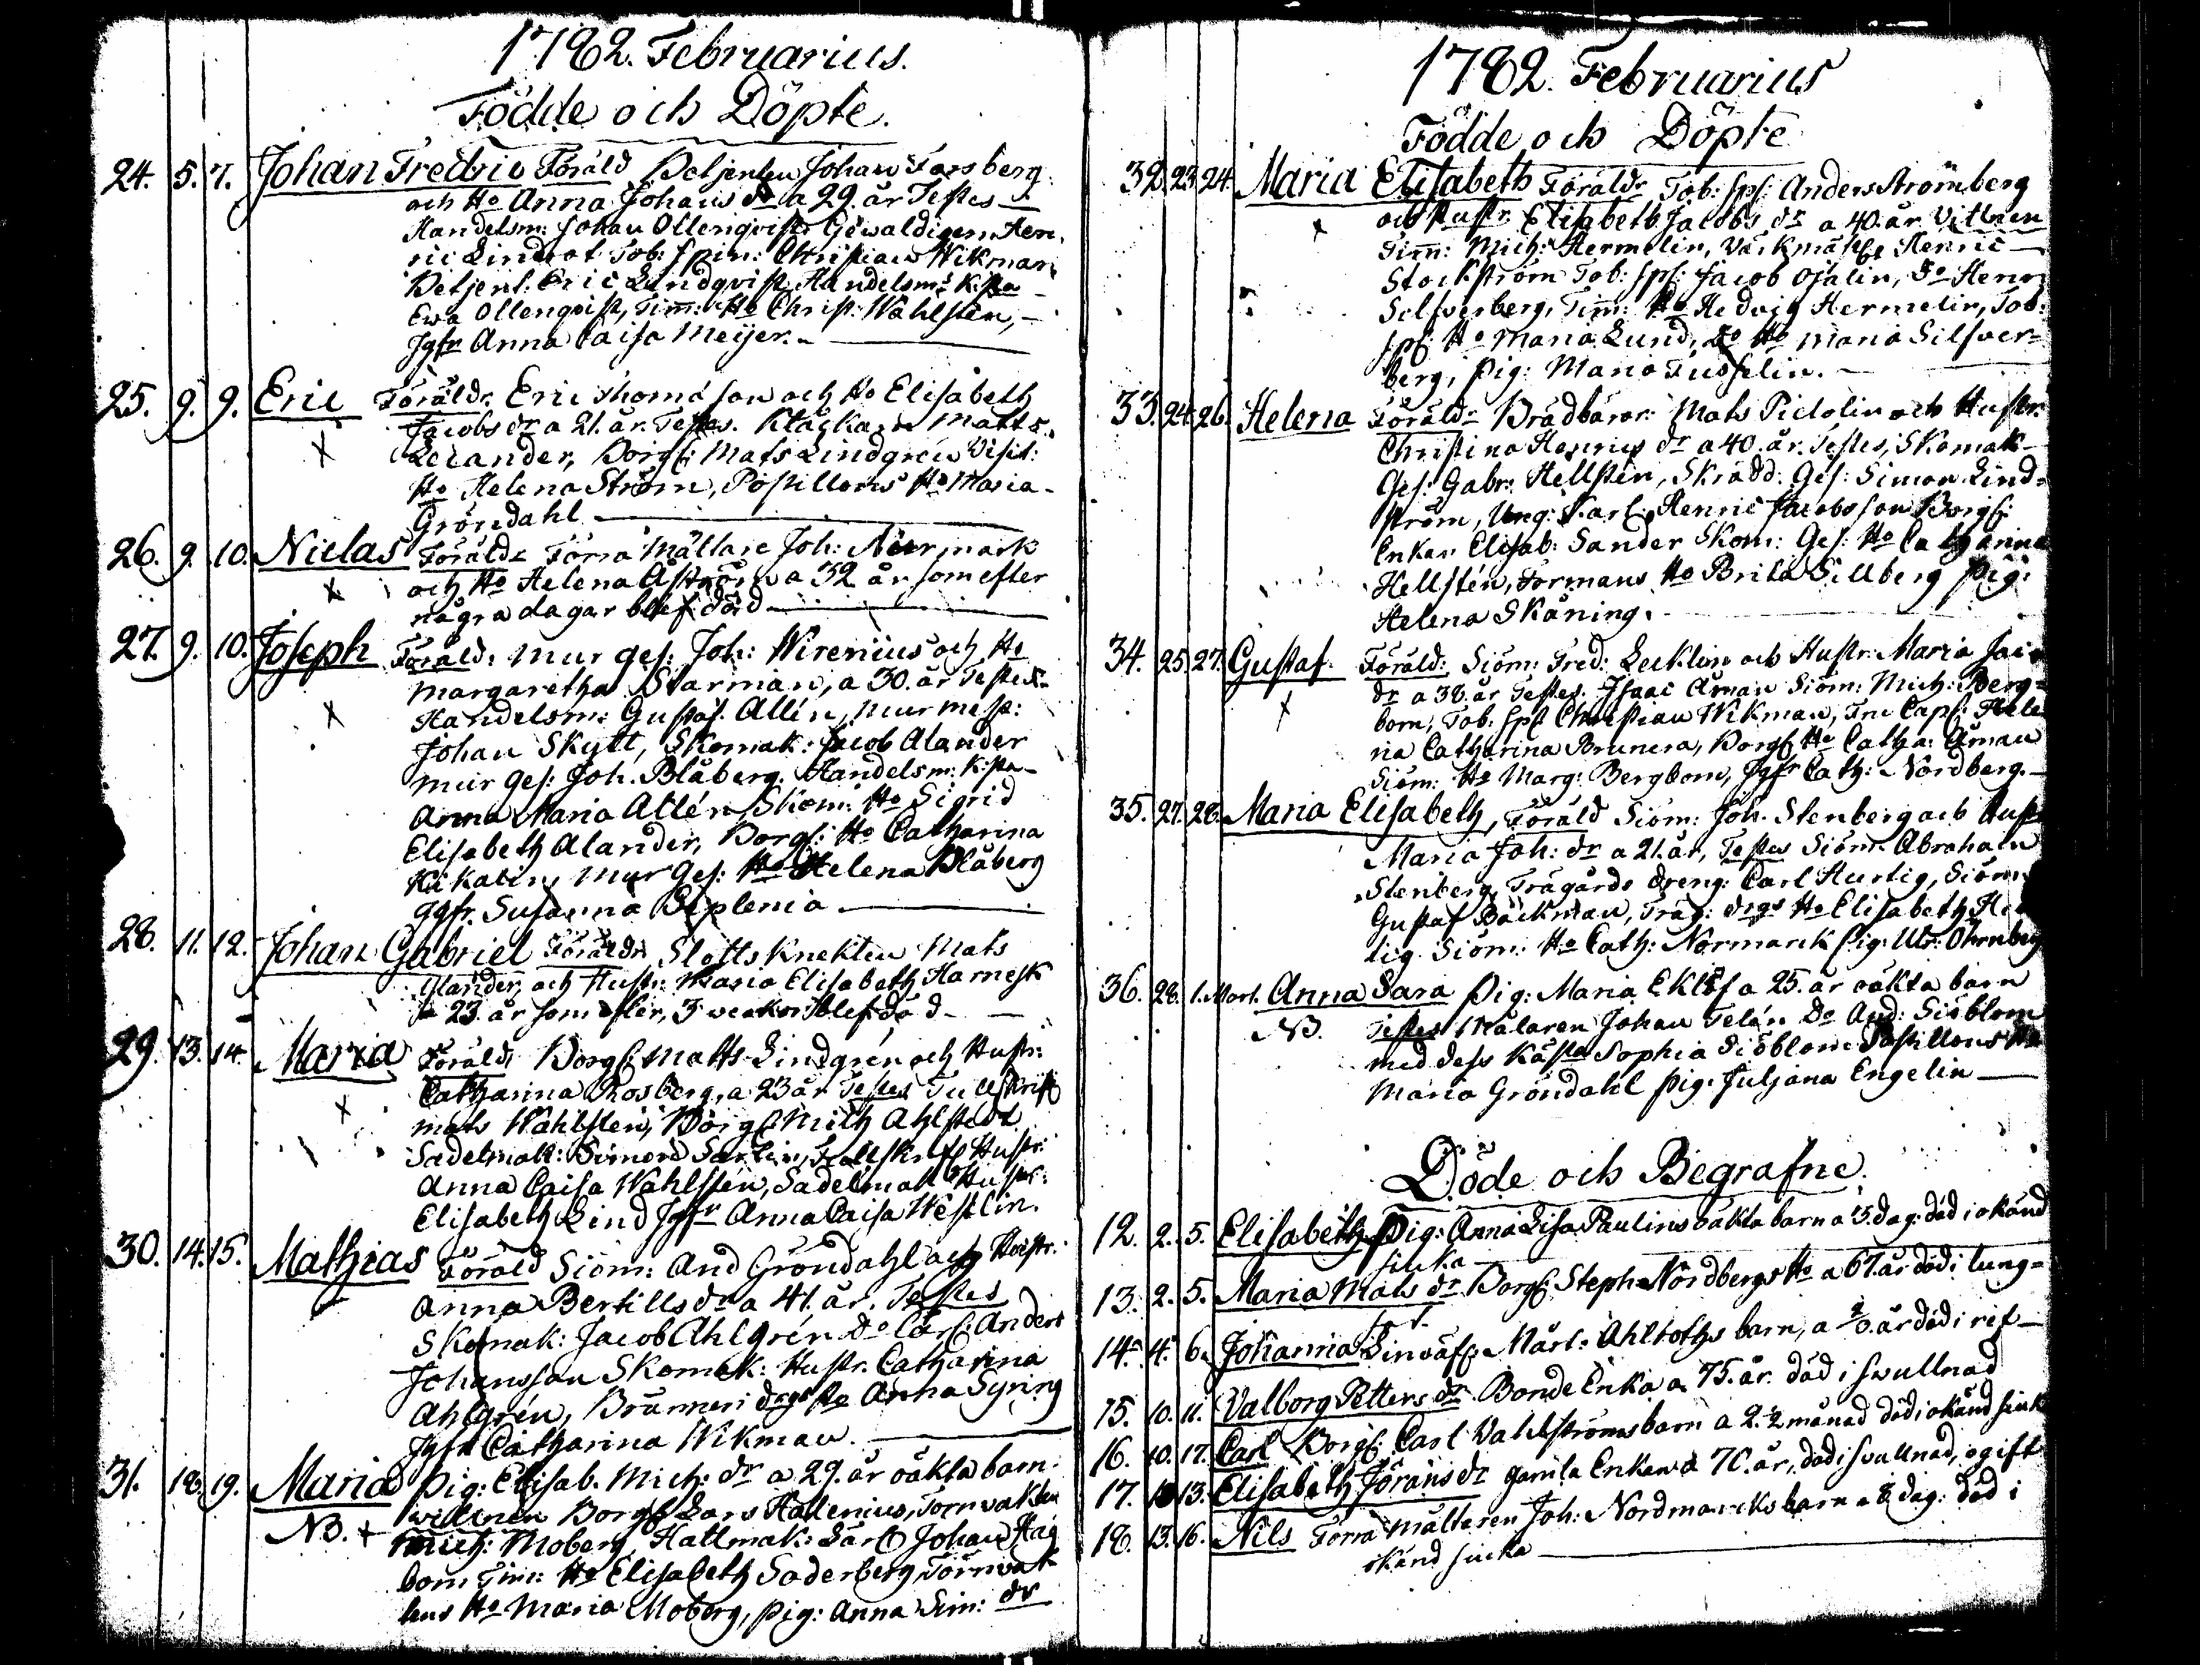 1782. Februarius.
Födde och Döpte.
24. 5. 7. Johan Fredric Föräld Betjenten Johan Forsberg
och Ho Anna Johans dr a 29. år Testes
Handelsm: Johan Ollenqvist, Gewaldigern Hen
ric Lindrot Tob: Spin: Christian Wikman
Betjent. Eric Lindqvist Handelsm: K:sta
Ewa Ollenqvist, Tim: Ho Christ: Wahlsten,
Jgfr Anna Caisa Meijer.
25. 9. 9. Eric Föräldr. Eric Thomasson och Ho Elisabeth
Jacobs dr a 21. år. Testes. Klåckarn Matts
Lelander, Borg: Mats Lindgren Visit:
Ho Helena Ström, Postillions Ho Maria
Gröndahl
26. 9. 10. Niclas Föräldr Förra Mältare Joh: Normark
och Ho Helena Åström a 32 år som efter
några dagar blef död
27. 9. 10. Joseph Föräld: Mur ges: Joh: Wirenius och Ho
Margaretha Starman, a 30. år Testes
Handelsm: Gustaf Allén, Mur mest:
Johan Skytt, Skomak: Jacob Alander
Mur ges: Joh. Blåberg. Handelsm: K:sta
Anna Maria Allén, Skom: Ho Sigrid
Elisabeth Alander, Borgs: Ho Catharina
Kikalin, Mur Ges: Ho Helena Blåberg
Jgfr. Susanna Peplenia
28. 11. 12. Johan Gabriel Föräldr Slotts Knekten Mats
Ulander, och Hustr: Maria Elisabeth Harnesk
a 23. år som efter 3 veckor blef död
29. 13. 14. Maria Föräldr Borgs: Matts Lindgrén och Hustr:
Catharina Rosberg, a 23 år Testes Tullskrif
Mats Wahlstén, Borgs Mich Ahlstedt
Sadelmak: Simon Sarlin, Tullskrifs Hustr:
Anna Caisa Wahlstén, Sadelmak Hustr:
Elisabeth Lind Jgfr Anna Caisa Westlin.
30. 14. 15. Mathias Föräld Siöm: And Gröndahl och Hustr:
Anna Bertills dr a 41. år. Testes
Skomak: Jacob Ahlgrén Do Lärl: Anders
Johansson Skomak: Hustr. Catharina
Ahlgrén, Brånneri drgs Ho Anna Syring
Jgfr Catharina Wikman.
31. 18. 19. Maria Pig: Elisab. Mich: dr a 29. år oäkta barn
NB. Wittnen Borgs Lars Hallenius, Tornvakten
Mich: Moberg, Hattmak: Lärl Johan Hag
bom Tim: Ho Elisabeth Soderberg Törnvak
tens Ho Maria Moberg, pig: Anna Sim: dr
1782. Februarius
Födde och Döpte
32. 23. 24. Maria Elisabeth Föräldr Tob: Sps: Anders Strömberg
och Hustr. Elisabeth Jacobs dr a 40. år Vitnen
Tim: Mich: Hermelin, Värkmäst Henric
Stockström Tob: Sps: Jacob Ojalin, Do Henr
Silfverberg, Tim: Ho Hedvig Hermelin, Tob:
Sps: Ho Maria Lund, Do Ho Maria Silfver=
berg, pig: Maria Tusselin.
33. 24. 26. Helena Föräldr Brädbärar: Mats Pidolin och Hustr:
Christina Henrics dr a 40. år. Testes, Skomak
Ges: Gabr: Hellstén, Skrädd: Ges: Simon Lind=
ström, Ung: Karl: Henric Jacobsson Borgs:
Enkan Elisab: Sander Skom: Ges: Ho Catharina
Hellstén, Formans Ho Brita Sillberg pig:
Helena Skåning.
34. 25. 27. Gustaf Föräld: Siöm: Fred: Lecklin och Hustr: Maria
dr a 38. år Testes. Isaac Åman Siöm: Mich: Berg=
bom, Tob: Sps Christian Wikman, Fru Capt: Hele
na Catharina Brunera, Borgs Ho Catha: Åman
Siöm: Ho Marg: Bergbom, Jgfr Cath: Nordberg.
35. 27. 28. Maria Elisabeth, Föräld Siöm: Joh. Stenberg och Hust
Maria Joh: dr a 21. år, Testes Siöm: Abraham
Stenberg, Trägårds dreng: Carl Hurtig, Siöm:
Gustaf Bäckman, Träg: drgs Ho Elisabeth Hur
tig Siöm: Ho Cath: Normarck pig: Ulr: Öhrnberg
36. 28. 1. Mart. Anna Sara Pig: Maria Eklöf a 25. år oäkta barn
NB. Testes Målaren Johan Telén Do And: Siöblom
med dess Kästa Sophia Siöblom Postillons Ho
Maria Gröndahl pig: Juljana Engelin
Döde och Begrafne.
12. 2. 5. Elisabeth Pig: Anna Lisa Paulins oäkta barn a 5. dag: död i okänd
siuka
13. 2. 5. Maria Mats dr Borgs: Steph: Nordbergs Ho a 67. år död i lung=
sot.
14. 4. 6. Johanna Linväf: Mårt: Ahlroths barn, a år död i ris
15. 10. 11. Valborg Petters dr Bonde Enka a 75. år. död i swullnad
16. 10. 17. Carl Borgs: Carl Vahlströms barn a 2 1/2 månad död i okänd siuk
17. 13. Elisabeth Jörans dr gamla Enkan a 70. år, död i svullnad, ogift
18. 13. 16. Nils Förra Mältaren Joh: Nordmarcks barn a 8 dag: död i
okänd siuka